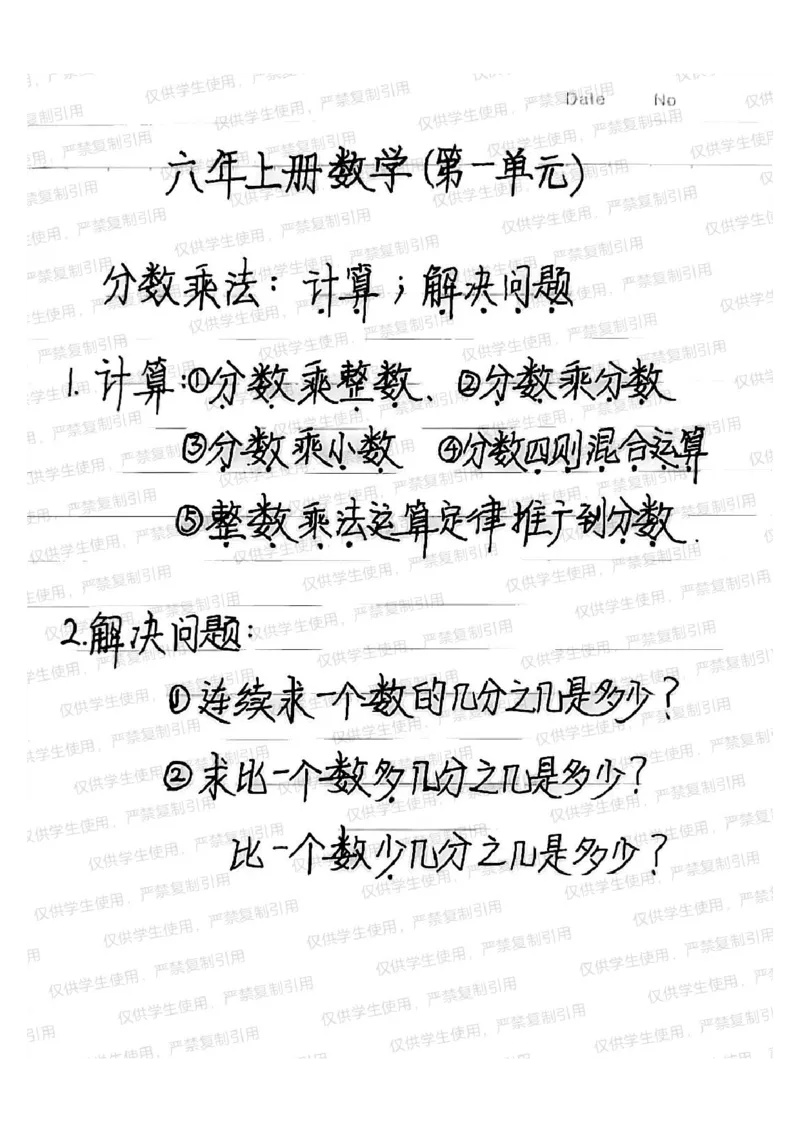 Date No
六年上册数学(第一单元)
分数乘法：计算；解决问题
1. 计算：①分数乘整数、②分数乘分数
③分数乘小数 ④分数四则混合运算
⑤整数乘法运算定律推广到分数.
2.解决问题：
①连续求一个数的几分之几是多少？
②求比一个数多几分之几是多少？
比一个数少几分之几是多少？
仅供学生使用，严禁复制引用